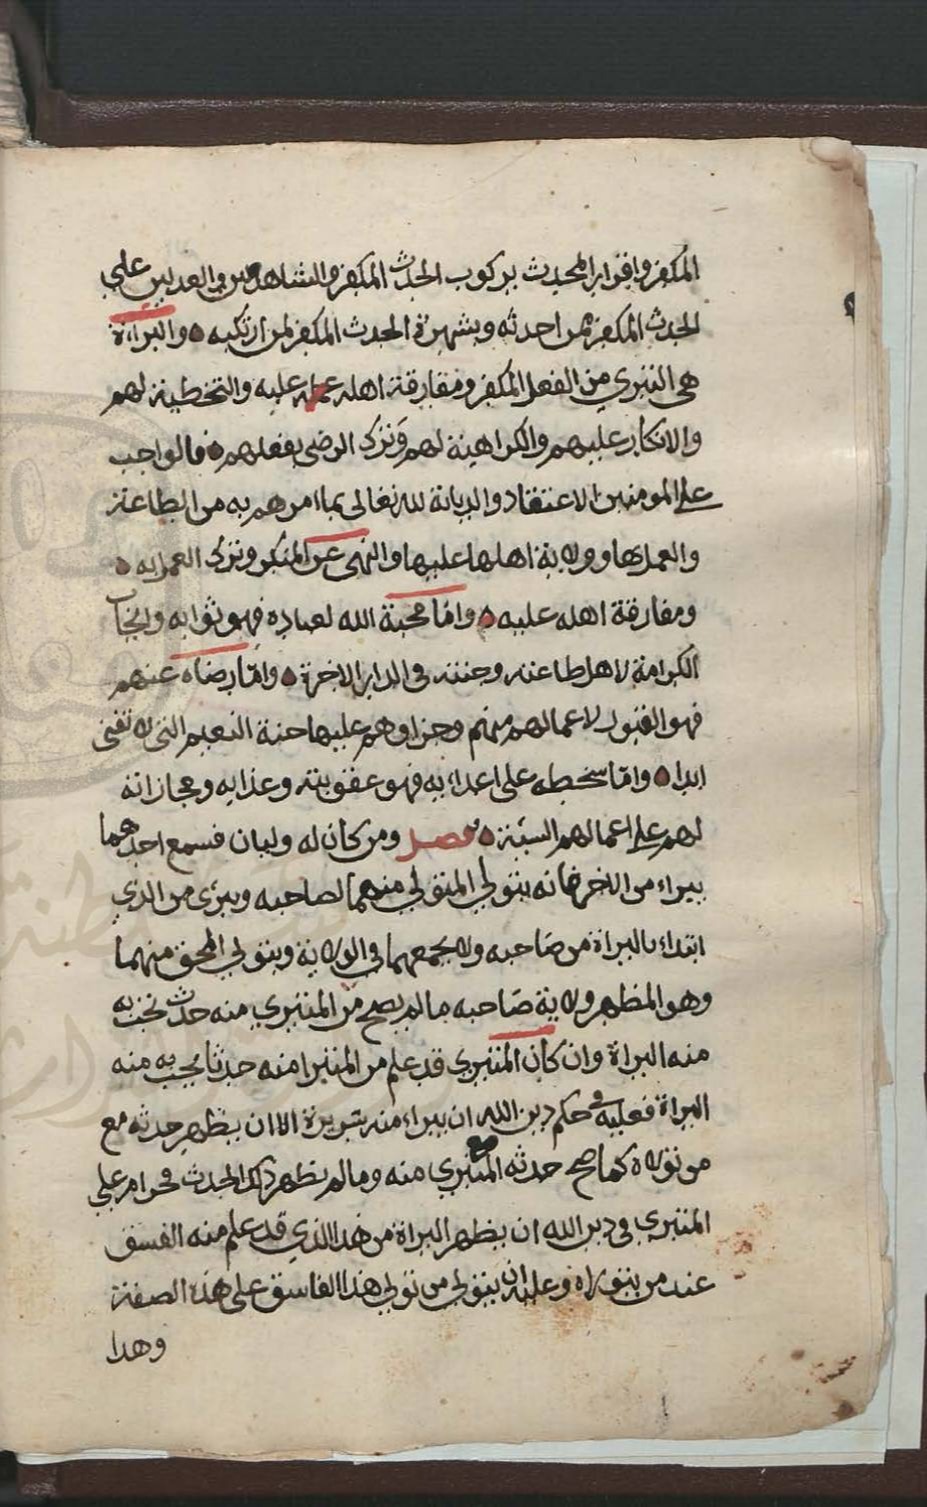 المكفر واقرار المحدث بركوب الحدث المكفر والشاهدين العدلين على
الحدث المكفر ممن احدثه وبشهرة الحدث المكفر لمن ارتكبه ٥ والبراءة
هي التبري من الفعل المكفر ومفارقة اهله عمله عليه والتخطية لهم
والانكار عليهم والكراهية لهم وَترك الرضى بفعلهم ٥ فالواجب
على المومنين الاعتقاد والديانة لله تعالى بما امرهم به من الطاعة
والعمل بها وولاية اهلها عليها والنهى عن المنكر وترك العمل به ٥
ومفارقة اهله عليه ٥ وامّا محبة الله لعباده فهو ثوابه وايجاب
الكرامة لاهل طاعته وجنته في الدار الاخرة ٥ وامّا رضاه عنهم
فهو القبول لاعمالهم منهم وجزاوهم عليها جنة النعيم التي لا تفنى
ابدا ٥ وامّا سخطه على اعداءيه فهو عقوبته وعذابه ومجازاته
لهم على اعمالهم السيّئة ٥ فصل ومن كان له وليان فسمع احدهما
يبراء من الاخر فانه يتولي المتولي منهما لصاحبه ويبرى من الذي
ابتداء بالبراة من صَاحبه ولا يجمعهما في الولاية ويتولي المحق منهما
وهو المظهر ولاية صَاحبه ما لم يصح من المتبري منه حدث تجب به
منه البراة وان كان المتبري قد علم من المتبرا منه حدثا يجب به منه
البراة فعليه في حكم دين الله ان يبراء منه سريرة الا ان يظهر حدثه مع
من تولاه كما صح حدثه مع المتبري منه وما لم يظهر ذلك الحدث فحرام علي
المتبري في دين الله ان يظهر البراة من هذا الذي قد علم منه الفسق
عند من يتولاه وعليه ان يتولي من تولي هذا الفاسق على هذه الصفة
وهدا